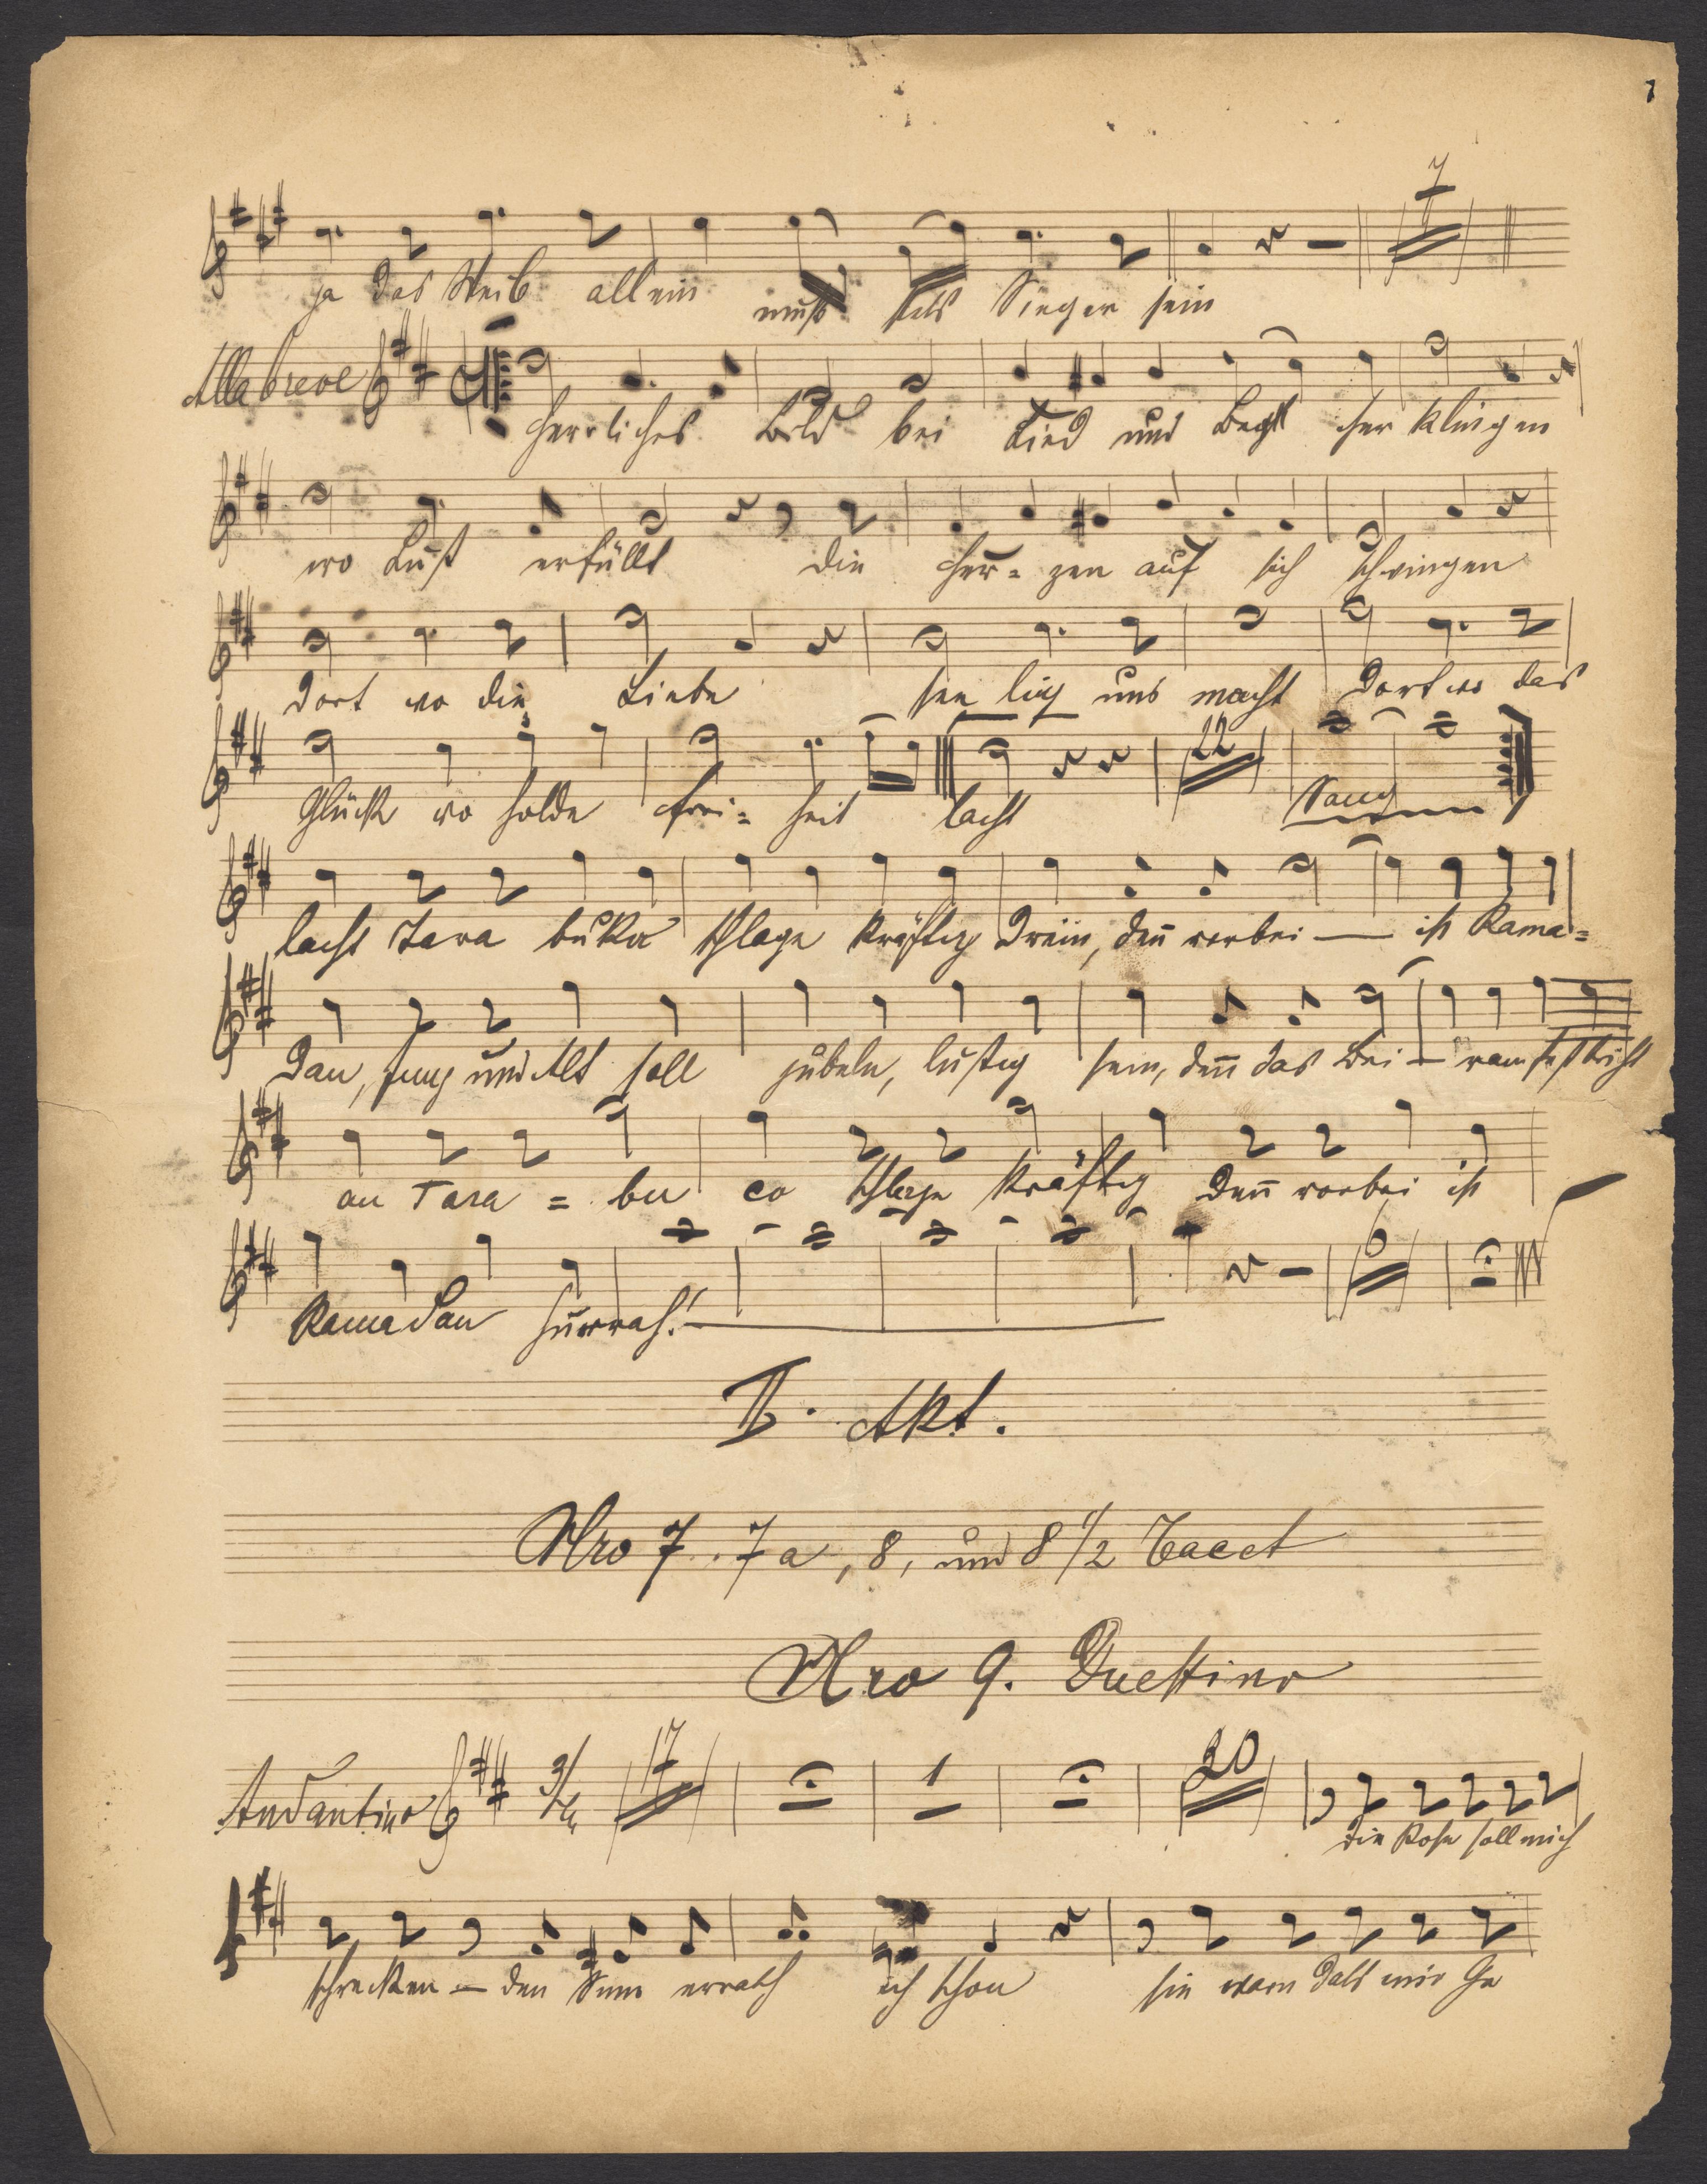 7
7
ja das Weib allein muß stets Sieger sein
Alla breve
Herrliches Bild bei Lied und Becherklingen
wo Lust erfüllt die Her= zen auf sich schwingen
dort wo die Liebe see lig uns macht dort wo das
22
Glück wo holde Frei= heit lacht
lacht Tara buka schlage kräftig drein, deñ vorbei — ist Rama=
dan, Jung und Alt soll jubeln, lustig sein, deñ das Bei — ramfest bricht
an Tara = bu ca schlage kräftig deñ vorbei ist
6
Ramadan hurrah! —
II. Akt.
Nro 7. 7a, 8, und 8 1/2 Tacet
Nro 9. Duettino
Andantino 3/4 17 1 20
die Rose soll mich
schrecken — den Sinn errath ich schon sie warn dass mir Ge